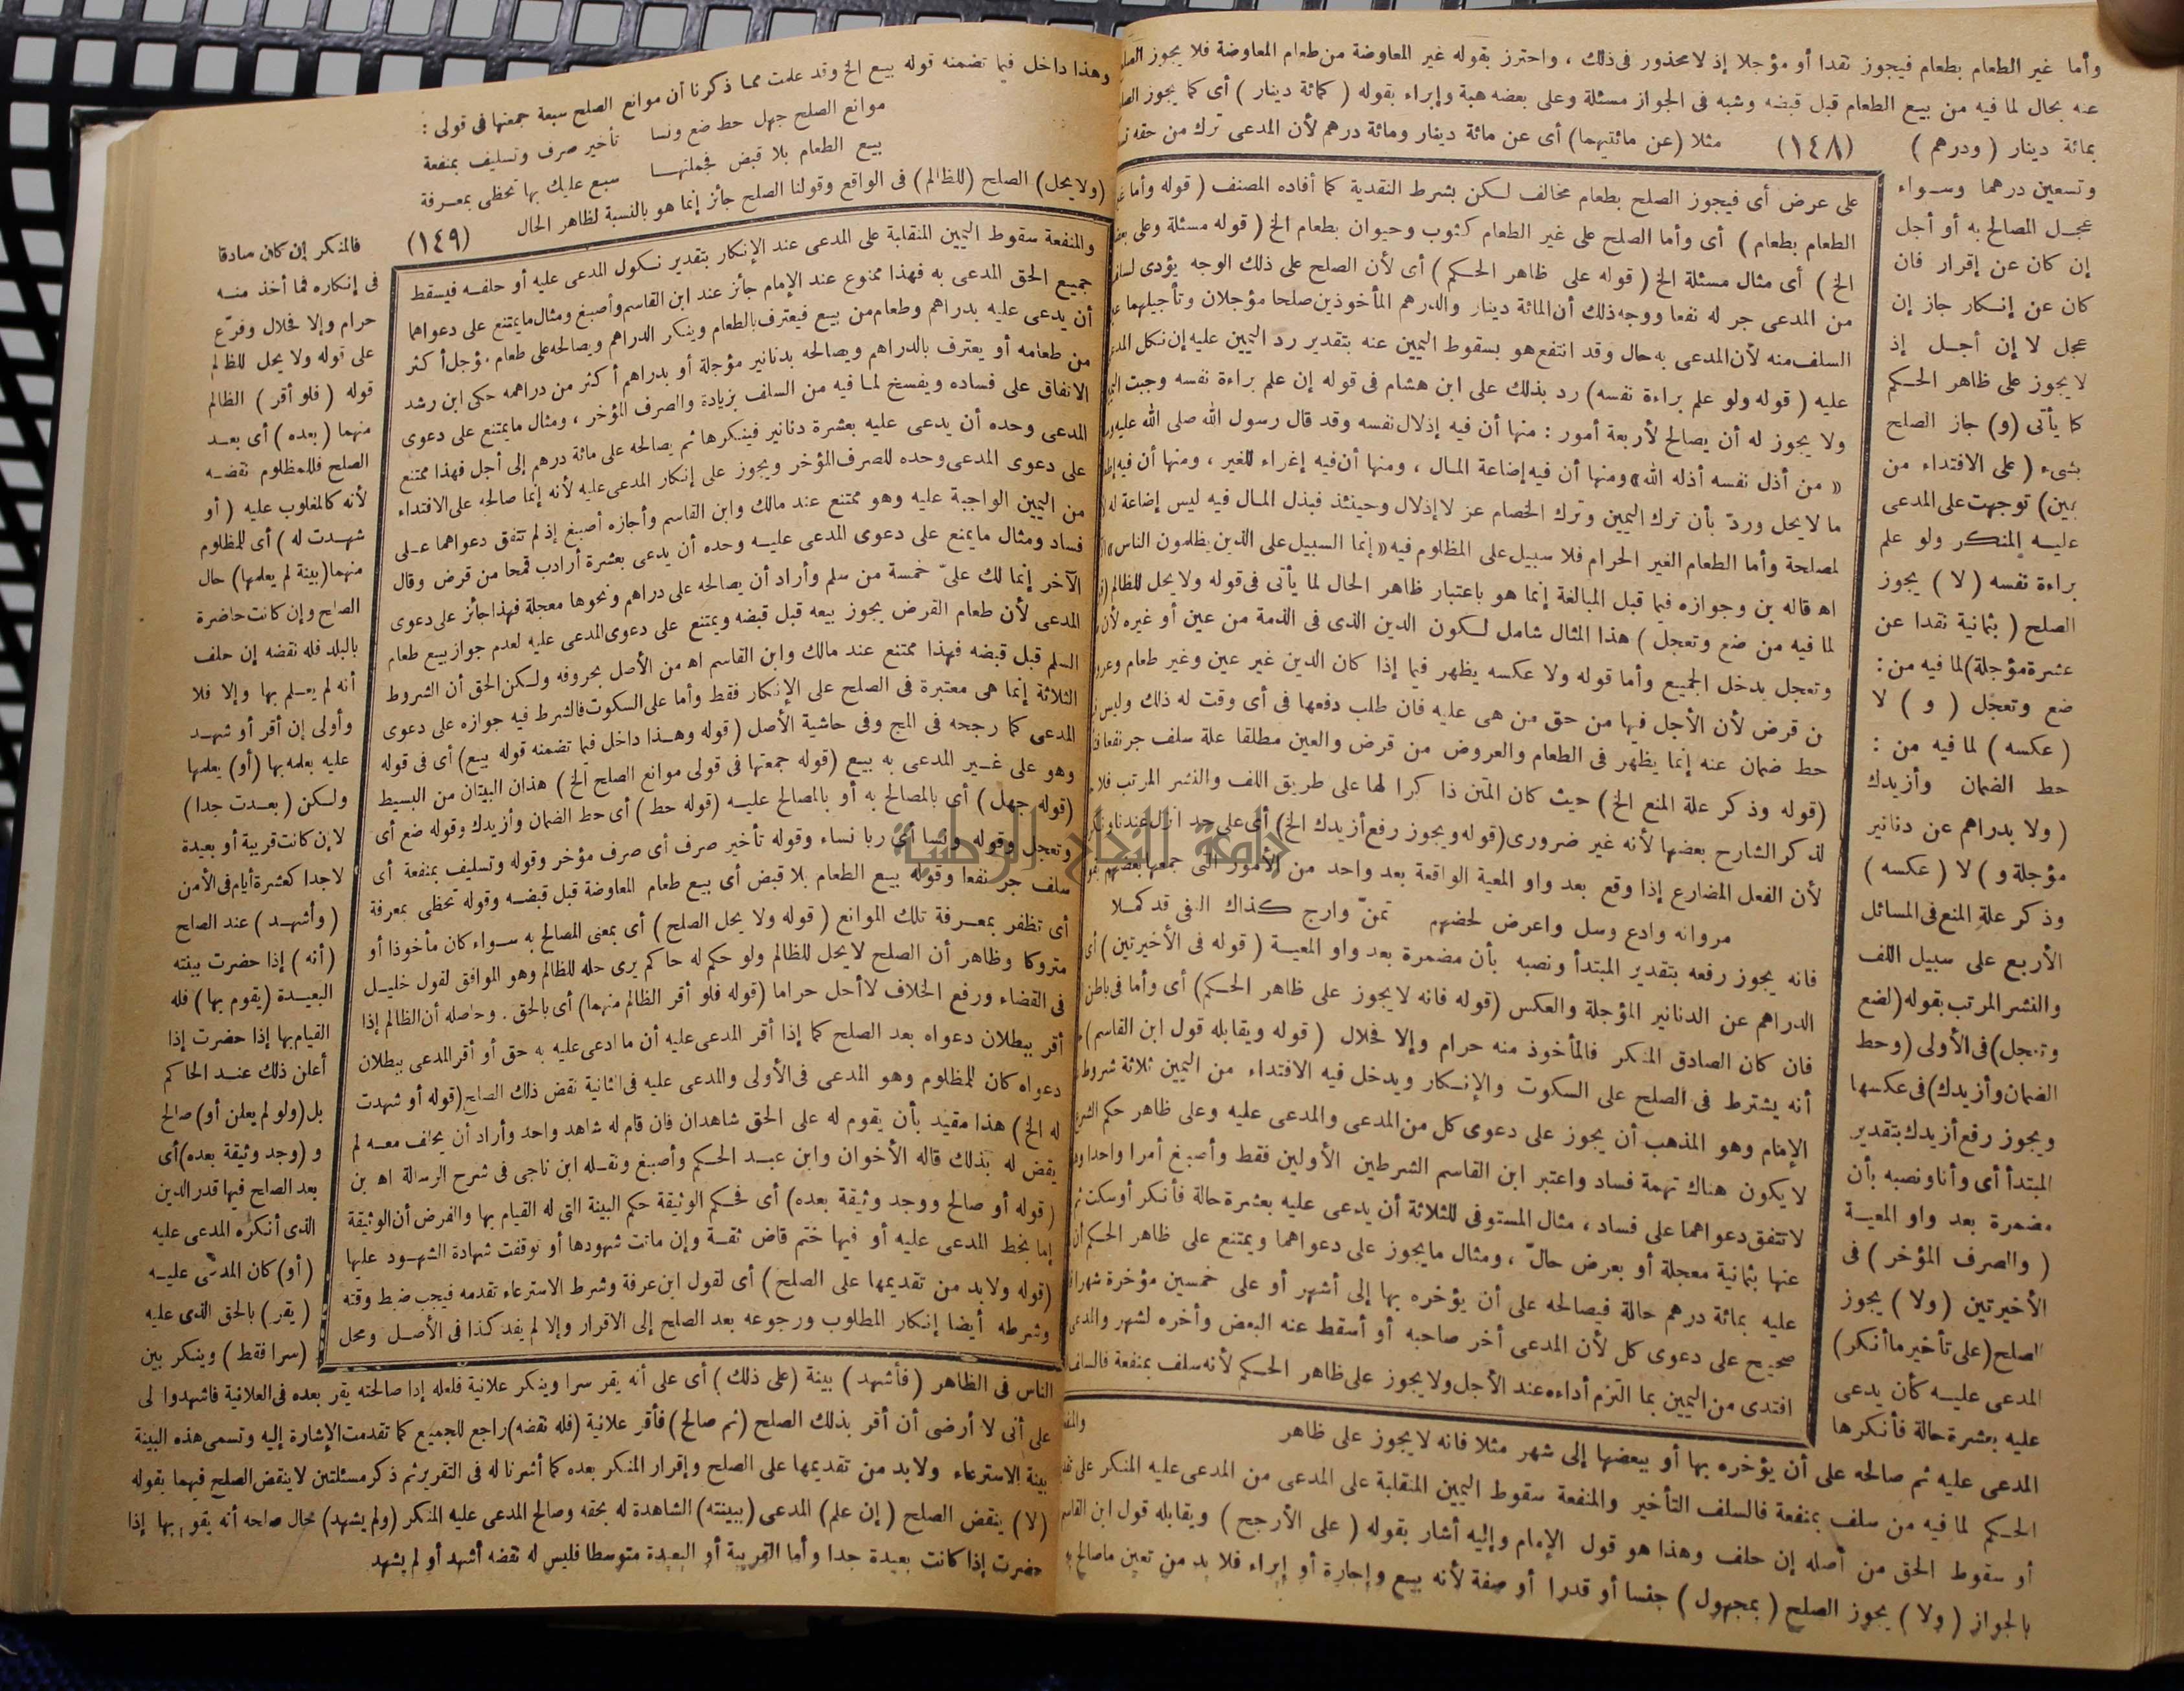 وأما غير الطعام بطعام فيجوز نقدا أو مؤجلا إذ لا محذور فى ذلك ، واحترز بقوله غير المعاوضة من طعام المعاوضة فلا يجوز
عنه بحال لما فيه من بيع الطعام قبل قبضه وشبه فى الجواز مسئلة وعلى بعضه هبة وإبراء بقوله ( كمائة دينار ) أى كما يجوز
بمائة دينار ( ودرهم ) (١٤٨) مثلا (عن مائتيهما) أى عن مائة دينار ومائة درهم لأن المدعى ترك من حقه
وتسعين درهما وسواء
عجل المصالح به أو أجل
إن كان عن إقرار فان
كان عن إنكار جاز إن
عجل لا إن أجل إذ
لا يجوز على ظاهر الحكم
كما يأتى (و) جاز الصلح
بشىء ( على الافتداء من
يمين) توجهت على المدعى
عليه المنكر ولو علم
براءة نفسه ( لا ) يجوز
الصلح ( بثمانية نقدا عن
عشرة مؤجلة) لما فيه من :
ضع وتعجل ( و ) لا
( عكسه ) لما فيه من :
حط الضمان وأزيدك
( ولا بدراهم عن دنانير
مؤجلة و ) لا ( عكسه )
وذكر علة المنع فى المسائل
الأربع على سبيل اللف
والنشر المرتب بقوله (لضع
وتعجل) فى الأولى (وحط
الضمان وأزيدك) فى عكسها
ويجوز رفع أزيدك بتقدير
المبتدأ أى وأنا ونصبه بأن
مضمرة بعد واو المعية
( والصرف المؤخر ) فى
الأخيرتين ( ولا ) يجوز
الصلح (على تأخير ما أنكر)
المدعى عليه كأن يدعى
عليه بعشرة حالة فأنكرها
على عرض أى فيجوز الصلح بطعام مخالف لكن بشرط النقدية كما أفاده المصنف ( قوله وأما
الطعام بطعام ) أى وأما الصلح على غير الطعام كثوب وحيوان بطعام الخ ( قوله مسئلة وعلى
الخ ) أى مثال مسئلة الخ ( قوله على ظاهر الحكم ) أى لأن الصلح على ذلك الوجه يؤدى
من المدعى جر له نفعا ووجه ذلك أن المائة دينار والدرهم المأخوذين صلحا مؤجلان وتأجيلهما
السلف منه لأن المدعى به حال وقد انتفع هو بسقوط اليمين عنه بتقدير رد اليمين عليه إن نكل
عليه ( قوله ولو علم براءة نفسه) رد بذلك على ابن هشام فى قوله إن علم براءة نفسه وجبت
ولا يجوز له أن يصالح لأربعة أمور : منها أن فيه إذلال نفسه وقد قال رسول الله صلى الله عليه
« من أذل نفسه أذله الله » ومنها أن فيه إضاعة المال ، ومنها أن فيه إغراء للغير ، ومنها أن فيه
ما لا يحل وردّ بأن ترك اليمين وترك الخصام عز لا إذلال وحينئذ فبذل المال فيه ليس إضاعة له
لمصلحة وأما الطعام الغير الحرام فلا سبيل على المظلوم فيه « إنما السبيل على الذين يظلمون الناس »
اه قاله بن وجوازه فيما قبل المبالغة إنما هو باعتبار ظاهر الحال لما يأتى فى قوله ولا يحل للظالم
لما فيه من ضع وتعجل ) هذا المثال شامل لكون الدين الذى فى الذمة من عين أو غيره لأن
وتعجل يدخل الجميع وأما قوله ولا عكسه يظهر فيما إذا كان الدين غير عين وغير طعام
ن قرض لأن الأجل فيها من حق من هى عليه فان طلب دفعها فى أى وقت له ذلك وليس
حط ضمان عنه إنما يظهر فى الطعام والعروض من قرض والعين مطلقا علة سلف جر نفعا
(قوله وذكر علة المنع الخ) حيث كان المتن ذاكرا لها على طريق اللف والنشر المرتب فلا
لذكر الشارح بعضها لأنه غير ضرورى (قوله ويجوز رفع أزيدك الخ) أى على حد انزل عندنا
لأن الفعل المضارع إذا وقع بعد واو المعية الواقعة بعد واحد من الأمور التى جمعها بعضهم
مروانه وادع وسل واعرض لحضهم تمنّ وارج كذاك النفى قد كملا
فانه يجوز رفعه بتقدير المبتدأ ونصبه بأن مضمرة بعد واو المعية ( قوله فى الأخيرتين ) أى
الدراهم عن الدنانير المؤجلة والعكس (قوله فانه لا يجوز على ظاهر الحكم) أى وأما فى باطن
فان كان الصادق المنكر فالمأخوذ منه حرام وإلا فحلال ( قوله ويقابله قول ابن القاسم )
أنه يشترط فى الصلح على السكوت والإنكار ويدخل فيه الافتداء من اليمين ثلاثة شروط
الإمام وهو المذهب أن يجوز على دعوى كل من المدعى والمدعى عليه وعلى ظاهر حكم
لا يكون هناك تهمة فساد واعتبر ابن القاسم الشرطين الأولين فقط وأصبغ أمرا واحدا
لا تتفق دعواهما على فساد ، مثال المستوفى للثلاثة أن يدعى عليه بعشرة حالة فأنكر أو سكت
عنها بثمانية معجلة أو بعرض حالّ ، ومثال ما يجوز على دعواهما ويمتنع على ظاهر الحكم أن
عليه بمائة درهم حالة فيصالحه على أن يؤخره بها إلى أشهر أو على خمسين مؤخرة شهرا
صحيح على دعوى كل لأن المدعى أخر صاحبه أو أسقط عنه البعض وأخره لشهر
افتدى من اليمين بما التزم أداءه عند الأجل ولا يجوز على ظاهر الحكم لأنه سلف بمنفعة
المدعى عليه ثم صالحه على أن يؤخره بها أو ببعضها إلى شهر مثلا فانه لا يجوز على ظاهر
الحكم لما فيه من سلف بمنفعة فالسلف التأخير والمنفعة سقوط اليمين المنقلبة على المدعى من المدعى عليه المنكر على
أو سقوط الحق من أصله إن حلف وهذا هو قول الإمام وإليه أشار بقوله ( على الأرجح ) ويقابله قول ابن
بالجواز ( ولا ) يجوز الصلح ( بمجهول ) جنسا أو قدرا أو صفة لأنه بيع وإجارة أو إبراء فلا بد من تعين ما صالح به
وهذا داخل فيما تضمنه قوله بيع الخ وقد علمت مما ذكرنا أن موانع الصلح سبعة جمعتها فى قولى :
موانع الصلح جهل حط ضع ونسا تأخير صرف وتسليف بمنفعة
بيع الطعام بلا قبض فجملتها سبع عليك بها تحظى بمعرفة
(ولا يحل) الصلح (للظالم) فى الواقع وقولنا الصلح جائز إنما هو بالنسبة لظاهر الحال
(١٤٩)
فالمنكر إن كان صادقا
فى إنكاره فما أخذ منه
حرام وإلا فحلال وفرّع
على قوله ولا يحل للظالم
قوله ( فلو أقر ) الظالم
منهما ( بعده ) أى بعد
الصلح فللمظلوم نقضه
لأنه كالمغلوب عليه ( أو
شهدت له ) أى للمظلوم
منهما (بينة لم يعلمها) حال
الصلح وإن كانت حاضرة
بالبلد فله نقضه إن حلف
أنه لم يعلم بها وإلا فلا
وأولى إن أقر أو شهد
عليه بعلمه بها (أو) يعلمها
ولكن ( بعدت جدا )
لا إن كانت قريبة أو بعيدة
لا جدا كعشرة أيام فى الأمن
( وأشهد ) عند الصلح
( أنه ) إذا حضرت بينته
البعيدة (يقوم بها) فله
القيام بها إذا حضرت إذا
أعلن ذلك عند الحاكم
بل (ولو لم يعلن أو) صالح
و (وجد وثيقة بعده) أى
بعد الصلح فيها قدر الدين
الذى أنكره المدعى عليه
( أو ) كان المدعى عليه
( يقر ) بالحق الذى عليه
(سرا فقط) وينكر بين
والمنفعة سقوط اليمين المنقلبة على المدعى عند الإنكار بتقدير نكول المدعى عليه أو حلفه فيسقط
جميع الحق المدعى به فهذا ممنوع عند الإمام جائز عند ابن القاسم وأصبغ ومثال ما يمتنع على دعواهما
أن يدعى عليه بدراهم وطعام من بيع فيعترف بالطعام وينكر الدراهم ويصالحه على طعام مؤجل أكثر
من طعامه أو يعترف بالدراهم ويصالحه بدنانير مؤجلة أو بدراهم أكثر من دراهمه حكى ابن رشد
الاتفاق على فساده ويفسخ لما فيه من السلف بزيادة والصرف المؤخر ، ومثال ما يمتنع على دعوى
المدعى وحده أن يدعى عليه بعشرة دنانير فينكرها ثم يصالحه على مائة درهم إلى أجل فهذا ممتنع
على دعوى المدعى وحده للصرف المؤخر ويجوز على إنكار المدعى عليه لأنه إنما صالحه على الافتداء
من اليمين الواجبة عليه وهو ممتنع عند مالك وابن القاسم وأجازه أصبغ إذ لم تتفق دعواهما على
فساد ومثال ما يمنع على دعوى المدعى عليه وحده أن يدعى بعشرة أرادب قمحا من قرض وقال
الآخر إنما لك علىّ خمسة من سلم وأراد أن يصالحه على دراهم ونحوها معجلة فهذا جائز على دعوى
المدعى لأن طعام القرض يجوز بيعه قبل قبضه ويمتنع على دعوى المدعى عليه لعدم جواز بيع طعام
السلم قبل قبضه فهذا ممتنع عند مالك وابن القاسم اه من الأصل بحروفه ولكن الحق أن الشروط
الثلاثة إنما هى معتبرة فى الصلح على الإنكار فقط وأما على السكوت فالشرط فيه جوازه على دعوى
المدعى كما رجحه فى المج وفى حاشية الأصل ( قوله وهذا داخل فيما تضمنه قوله بيع) أى فى قوله
وهو على غير المدعى به بيع (قوله جمعتها فى قولى موانع الصلح الخ ) هذان البيتان من البسيط
(قوله جهل) أى بالمصالح به أو بالمصالح عليه (قوله حط) أى حط الضمان وأزيدك وقوله ضع أى
وتعجل وقوله ونسا أى ربا نساء وقوله تأخير صرف أى صرف مؤخر وقوله وتسليف بمنفعة أى
سلف جر نفعا وقوله بيع الطعام بلا قبض أى بيع طعام المعاوضة قبل قبضه وقوله تحظى بمعرفة
أى تظفر بمعرفة تلك الموانع ( قوله ولا يحل الصلح ) أى بمعنى المصالح به سواء كان مأخوذا أو
متروكا وظاهر أن الصلح لا يحل للظالم ولو حكم له حاكم يرى حله للظالم وهو الموافق لقول خليل
فى القضاء ورفع الخلاف لا أحل حراما (قوله فلو أقر الظالم منهما) أى بالحق . وحاصله أن الظالم إذا
أقر ببطلان دعواه بعد الصلح كما إذا أقر المدعى عليه أن ما ادعى عليه به حق أو أقر المدعى ببطلان
دعواه كان للمظلوم وهو المدعى فى الأولى والمدعى عليه فى الثانية نقض ذلك الصلح (قوله أو شهدت
له الخ) هذا مقيد بأن يقوم له على الحق شاهدان فان قام له شاهد واحد وأراد أن يحلف معه لم
يقض له بذلك قاله الأخوان وابن عبد الحكم وأصبغ ونقله ابن ناجى فى شرح الرسالة اه بن
(قوله أو صالح ووجد وثيقة بعده) أى فحكم الوثيقة حكم البينة التى له القيام بها والفرض أن الوثيقة
إما بخط المدعى عليه أو فيها ختم قاض ثقة وإن ماتت شهودها أو توقفت شهادة الشهود عليها
(قوله ولا بد من تقديمها على الصلح ) أى لقول ابن عرفة وشرط الاسترعاء تقدمه فيجب ضبط وقته
وشرطه أيضا إنكار المطلوب ورجوعه بعد الصلح إلى الاقرار وإلا لم يفد كذا فى الأصل ومحل
الناس فى الظاهر ( فأشهد ) بينة (على ذلك) أى على أنه يقر سرا وينكر علانية فلعله إذا صالحته يقر بعده فى العلانية فاشهدوا لى
على أنى لا أرضى أن أقر بذلك الصلح (ثم صالح) فأقر علانية (فله نقضه) راجع للجميع كما تقدمت الإشارة إليه وتسمى هذه البينة
بينة الاسترعاء ولا بد من تقديمها على الصلح وإقرار المنكر بعده كما أشرنا له فى التقرير ثم ذكر مسئلتين لا ينقض الصلح فيهما بقوله
(لا) ينقض الصلح ( إن علم) المدعى (ببينته) الشاهدة له بحقه وصالح المدعى عليه المنكر (ولم يشهد) حال صلحه أنه يقوم بها إذا
حضرت إذا كانت بعيدة جدا وأما القريبة أو البعيدة متوسطا فليس له نقضه أشهد أو لم يشهد
جامعة النجاح الوطنية